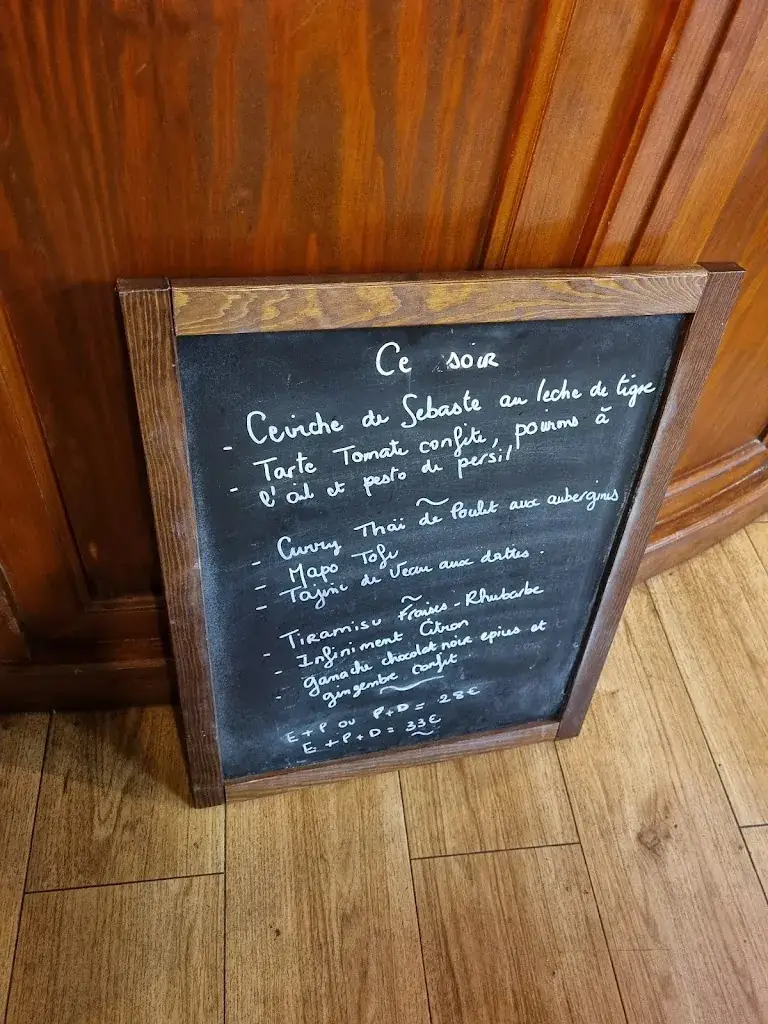 Ce soir
- Ceviche de Sebaste au leche de tigre
- Tarte Tomate confite, poivrons à
l'ail et pesto de persil
~
- Curry Thaï de Poulet aux aubergines
- Mapo Tofu
- Tajine de Veau aux dattes.
~
- Tiramisu Fraises - Rhubarbe
- Infiniment Citron
- ganache chocolat noir epices et
gingembre confit
E + P ou P + D = 28€
E + P + D = 33€